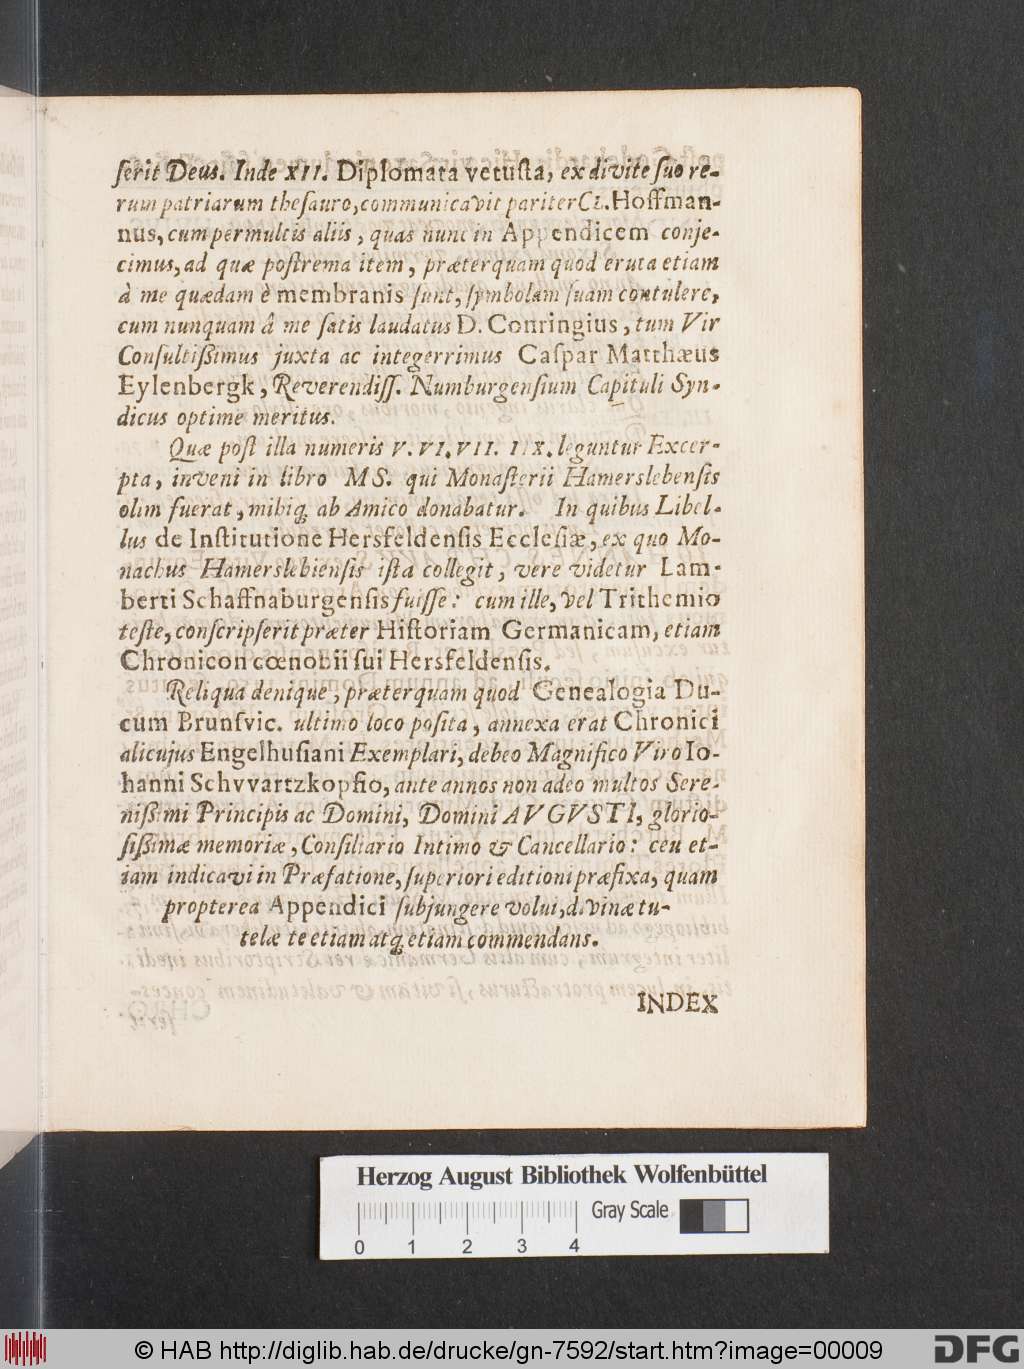 ſerit Deus. Inde XII. Diplomata vetuſta, ex divite ſuo re-
rum patriarum theſauro, communicavit pariter Cl. Hoffman-
nus, cum permultis aliis, quas nunc in Appendicem conje-
cimus, ad quæ poſtrema item, præterquam quod eruta etiam
à me quædam è membranis ſunt, ſymbolam ſuam contulere,
cum nunquam â me ſatis laudatus D. Conringius, tum Vir
Conſultiſſimus juxta ac integerrimus Caſpar Matthæus
Eylenbergk, Reverendiſſ. Numburgenſium Capituli Syn-
dicus optime meritus.
Quæ poſt illa numeris V. VI. VII. IIX. leguntur Excer-
pta, inveni in libro MS. qui Monaſterii Hamerslebenſis
olim fuerat, mihiq; ab Amico donabatur. In quibus Libel-
lus de Inſtitutione Hersfeldenſis Eccleſiæ, ex quo Mo-
nachus Hamerslebienſis iſta collegit, vere videtur Lam-
berti Schaffnaburgenſis fuiſſe: cum ille, vel Trithemio
teſte, conſcripſerit præter Hiſtoriam Germanicam, etiam
Chronicon cœnobii ſui Hersfeldenſis.
Reliqua denique, præterquam quod Genealogia Du-
cum Brunſvic. ultimo loco poſita, annexa erat Chronici
alicujus Engelhuſiani Exemplari, debeo Magnifico Viro Io-
hanni Schvvartzkopfio, ante annos non adeo multos Sere-
niſſimi Principis ac Domini, Domini AVGVSTI, glorio-
ſiſſimæ memoriæ, Conſiliario Intimo & Cancellario: ceu et-
iam indicavi in Præfatione, ſuperiori editioni præfixa, quam
propterea Appendici ſubjungere volui, divinæ tu-
telæ te etiam atq; etiam commendans.
INDEX
Herzog August Bibliothek Wolfenbüttel
Gray Scale
0 1 2 3 4
© HAB http://diglib.hab.de/drucke/gn-7592/start.htm?image=00009
DFG